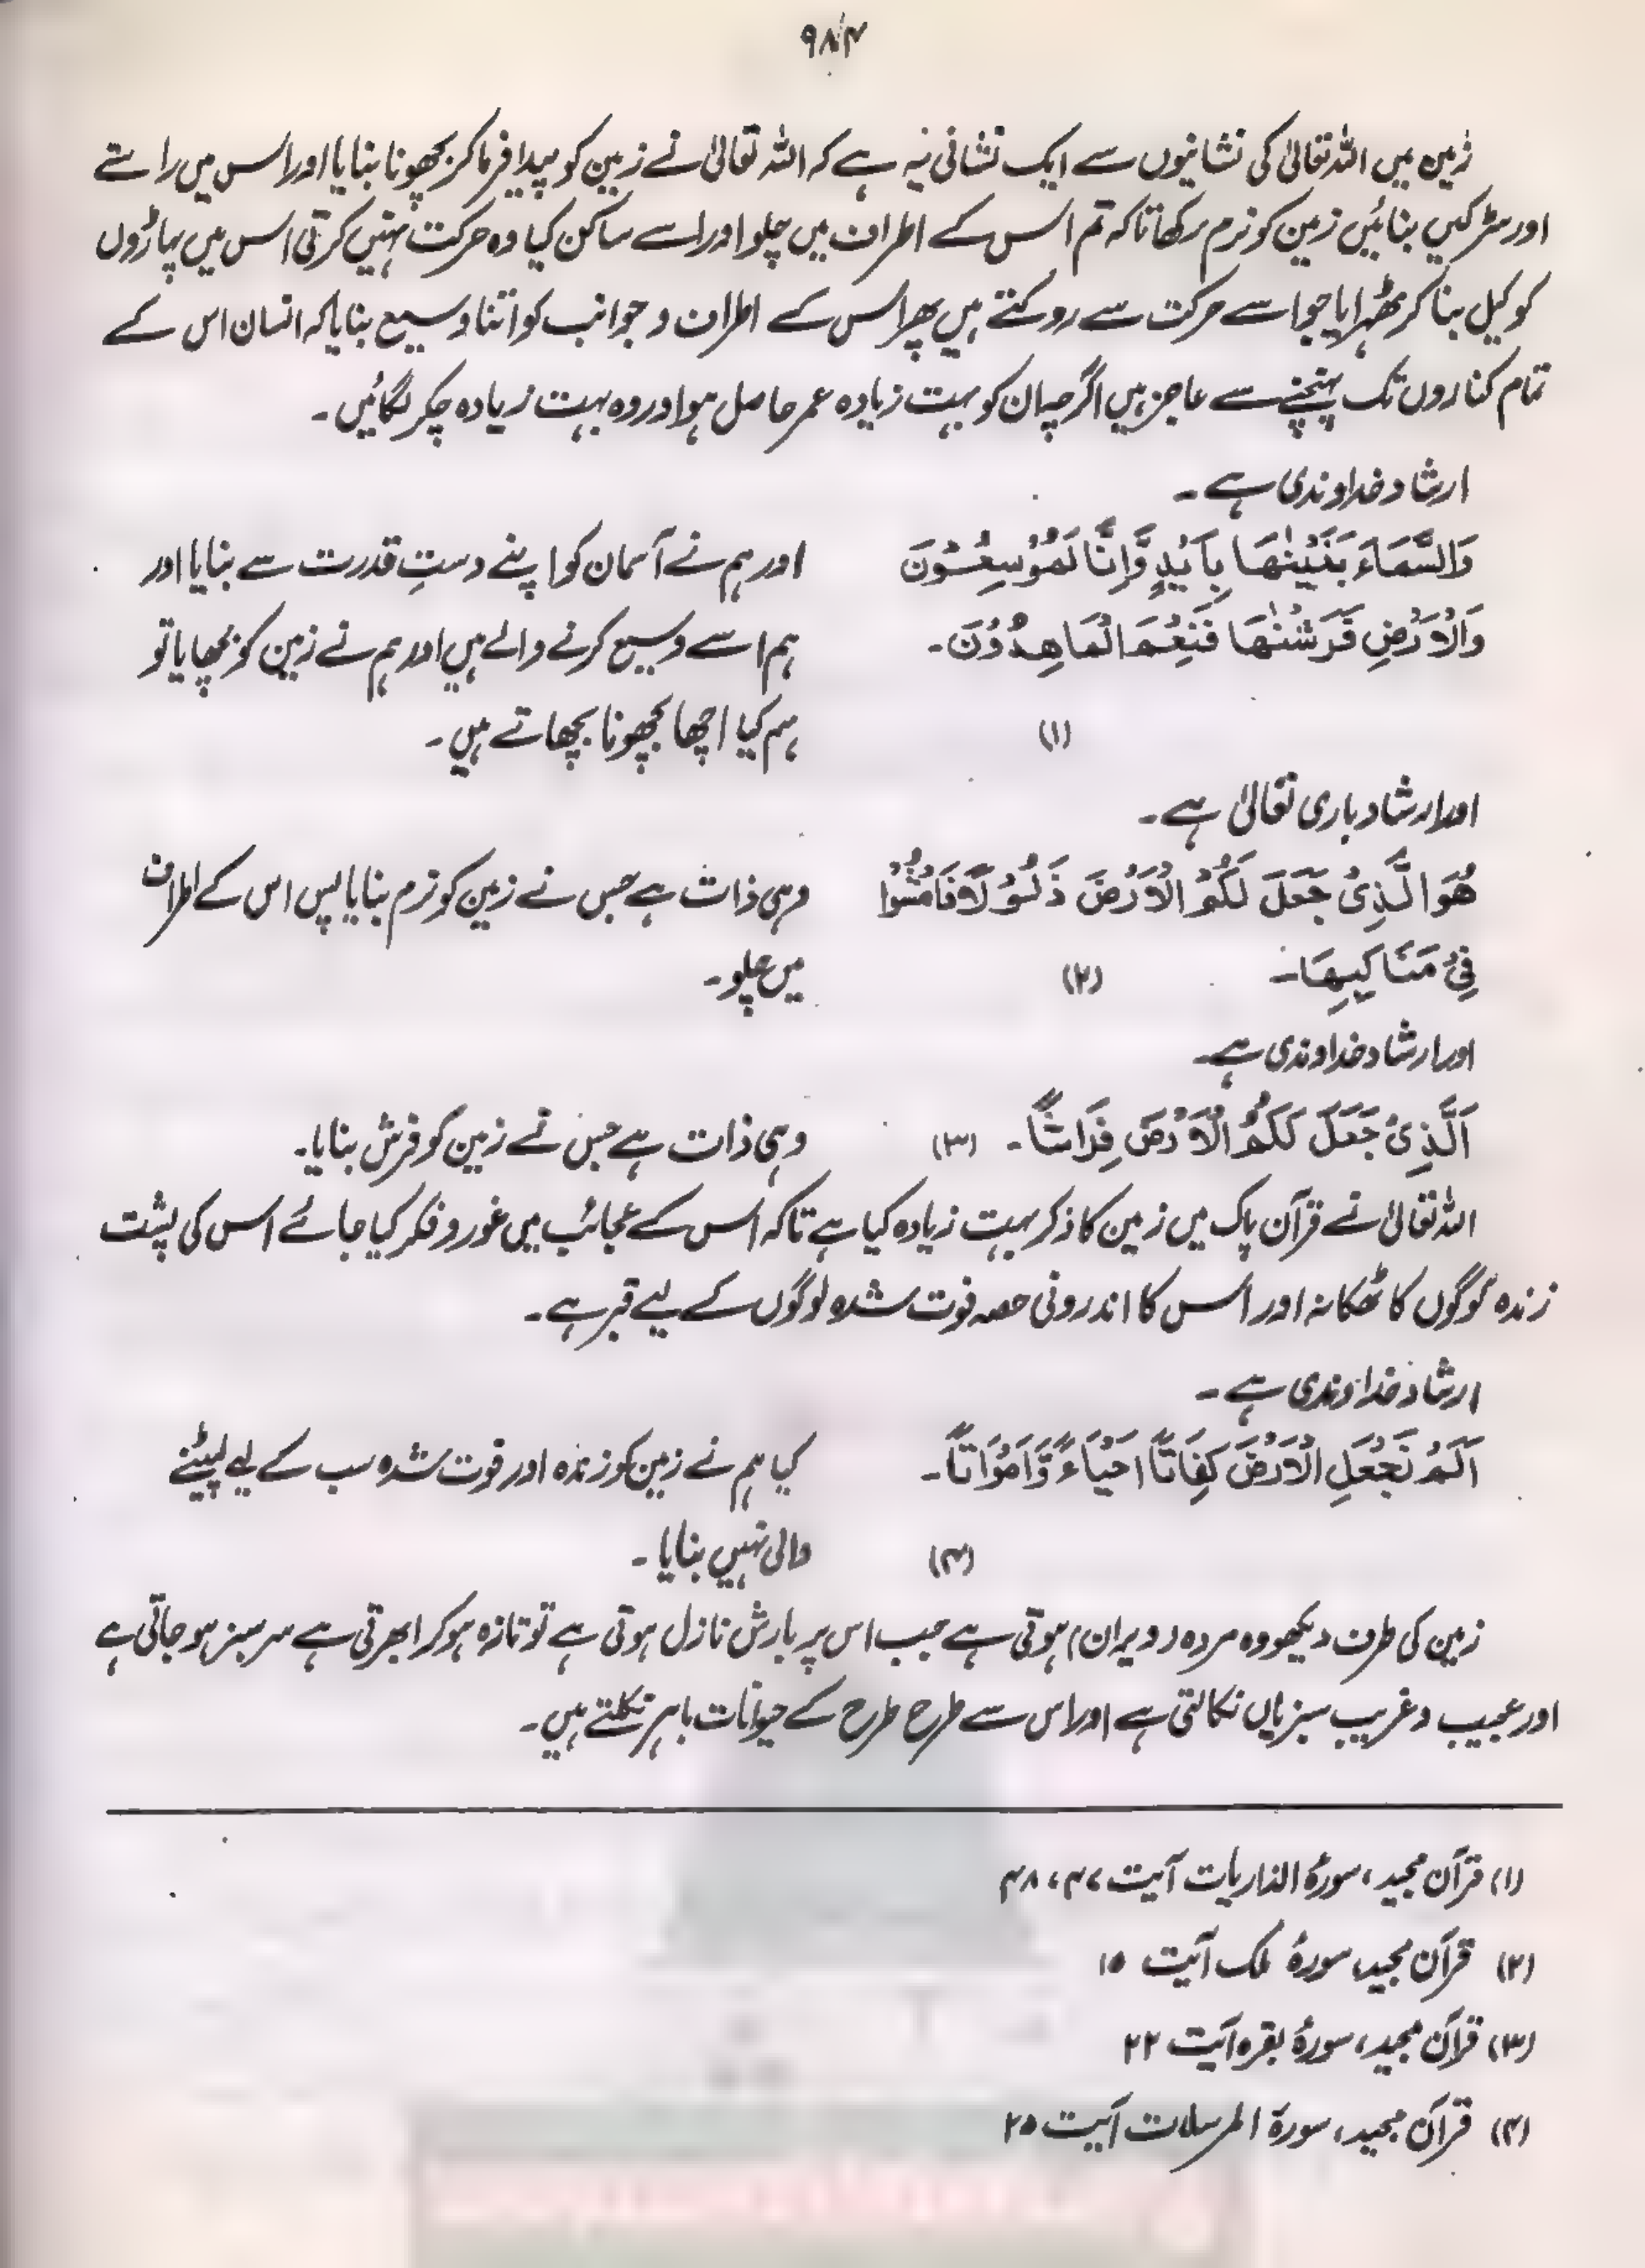 ۹۸۴
زمین میں اللہ تعالیٰ کی نشانیوں سے ایک نشانی یہ ہے کہ اللہ تعالیٰ نے زمین کو پیدا فرما کر بچھونا بنایا اور اس میں راستے
اور سڑکیں بنائیں زمین کو نرم رکھا تاکہ تم اس کے اطراف میں چلو اور اسے ساکن کیا وہ حرکت نہیں کرتی اس میں پہاڑوں
کو کیل بنا کر ٹھہرایا جو اسے حرکت سے روکتے ہیں پھر اس کے اطراف و جوانب کو اتنا وسیع بنایا کہ انسان اس کے
تمام کناروں تک پہنچنے سے عاجز ہیں اگرچہ ان کو بہت زیادہ عمر حاصل ہو اور وہ بہت زیادہ چکر لگائیں۔
ارشاد خداوندی ہے۔
وَالسَّمَاءَ بَنَيْنٰهَا بِاَيْدٍ وَّاِنَّا لَمُوْسِعُوْنَ اور ہم نے آسمان کو اپنے دستِ قدرت سے بنایا اور
وَالْاَرْضِ فَرَشْنٰهَا فَنِعْمَ الْمَاهِدُوْنَ۔ ہم اسے وسیع کرنے والے ہیں اور ہم نے زمین کو بچھایا تو
(۱) ہم کیا اچھا بچھونا بچھاتے ہیں۔
اور ارشاد باری تعالیٰ ہے۔
هُوَ الَّذِىْ جَعَلَ لَكُمُ الْاَرْضَ ذَلُوْلًا فَامْشُوْا وہی ذات ہے جس نے زمین کو نرم بنایا پس اس کے اطراف
فِىْ مَنَاكِبِهَا۔ (۲) میں چلو۔
اور ارشاد خداوندی ہے۔
اَلَّذِىْ جَعَلَ لَكُمُ الْاَرْضَ فِرَاشًا۔ (۳) وہی ذات ہے جس نے زمین کو فرش بنایا۔
اللہ تعالیٰ نے قرآن پاک میں زمین کا ذکر بہت زیادہ کیا ہے تاکہ اس کے عجائب میں غور و فکر کیا جائے اس کی پشت
زندہ لوگوں کا ٹھکانہ اور اس کا اندرونی حصہ فوت شدہ لوگوں کے لیے قبر ہے۔
ارشاد خداوندی ہے۔
اَلَمْ نَجْعَلِ الْاَرْضَ كِفَاتًا اَحْيَاءً وَّاَمْوَاتًا۔ کیا ہم نے زمین کو زندہ اور فوت شدہ سب کے لیے لپیٹنے
(۴) والی نہیں بنایا۔
زمین کی طرف دیکھو وہ مردہ (ویران) ہوتی ہے جب اس پر بارش نازل ہوتی ہے تو تازہ ہو کر ابھرتی ہے سرسبز ہو جاتی ہے
اور عجیب و غریب سبزیاں نکالتی ہے اور اس سے طرح طرح کے حیوانات باہر نکلتے ہیں۔
(۱) قرآن مجید، سورۂ الذاریات آیت ۴۷، ۴۸
(۲) قرآن مجید، سورۂ ملک آیت ۱۵
(۳) قرآن مجید، سورۂ بقرہ آیت ۲۲
(۴) قرآن مجید، سورۃ المرسلات آیت ۲۵